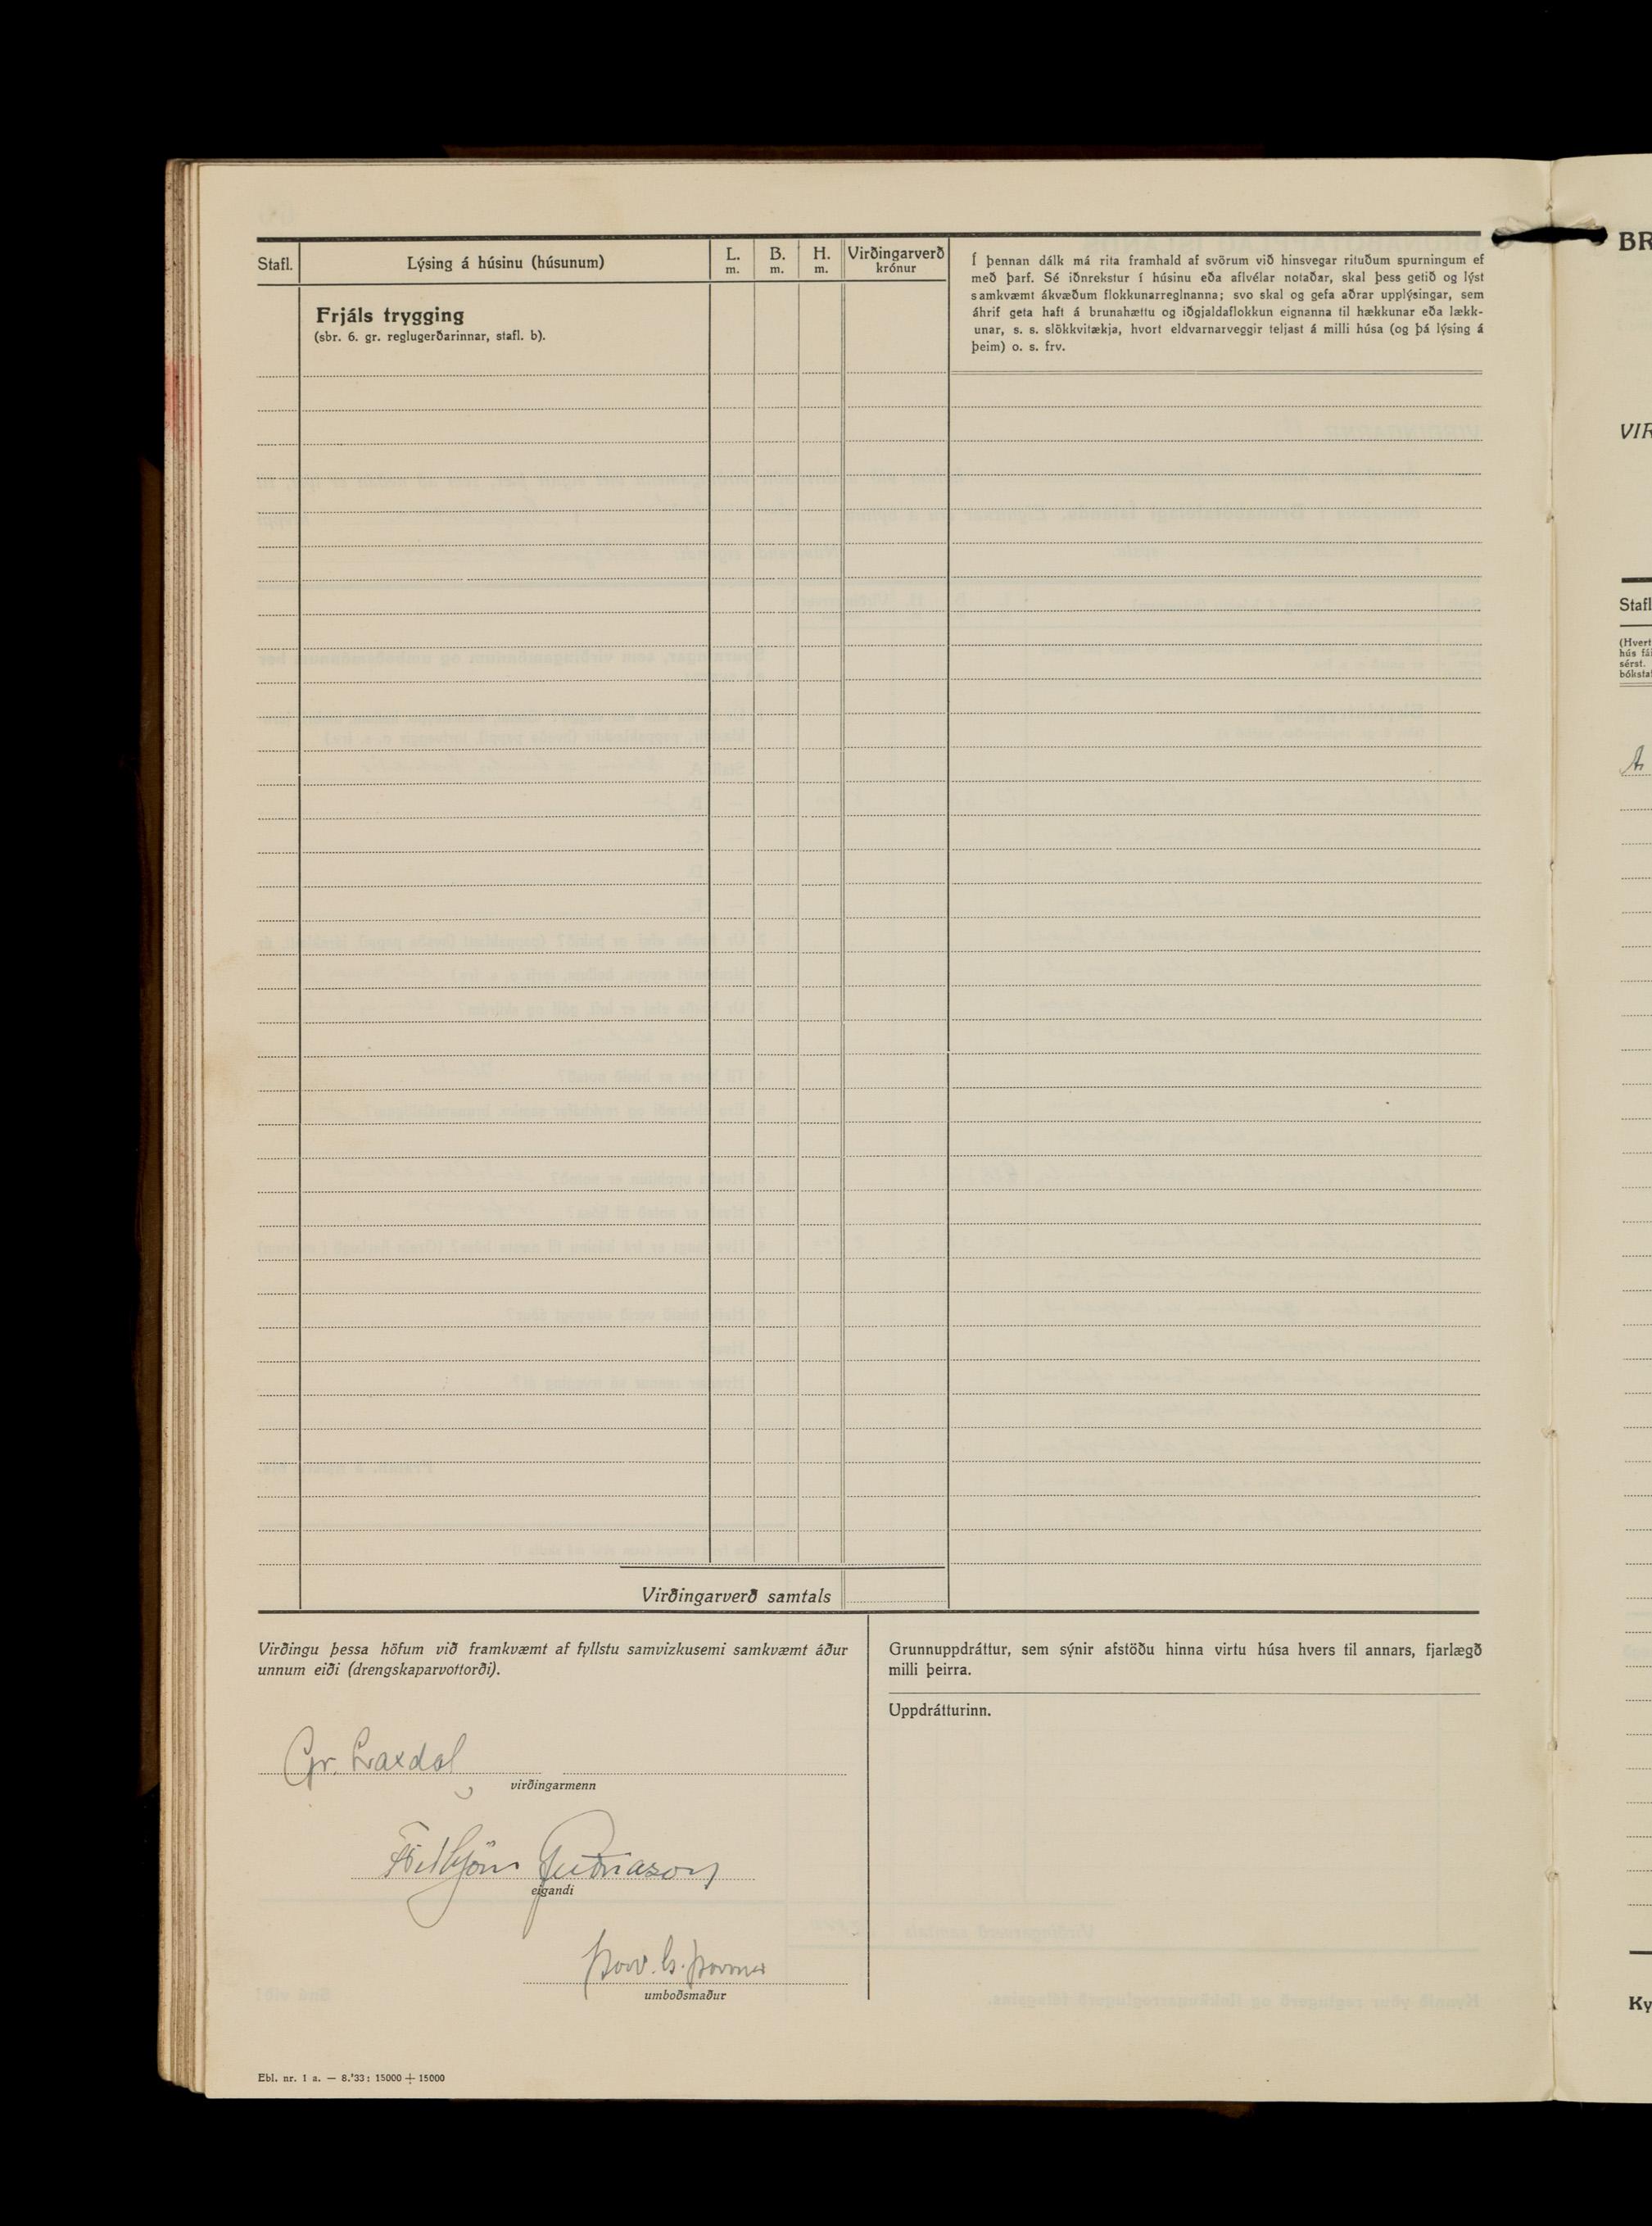 Stafl.
Lýsing á húsinu (húsunum)
L.
m.
B.
m.
H.
m.
Virðingarverð
krónur
Frjáls trygging
(sbr. 6. gr. reglugerðarinnar, stafl. b).
Í þennan dálk má rita framhald af svörum við hinsvegar rituðum spurningum ef
með þarf. Sé iðnrekstur í húsinu eða aflvélar notaðar, skal þess getið og lýst
samkvæmt ákvæðum flokkunarreglnanna; svo skal og gefa aðrar upplýsingar, sem
áhrif geta haft á brunahættu og iðgjaldaflokkun eignanna til hækkunar eða lækk-
unar, s. s. slökkvitækja, hvort eldvarnarveggir teljast á milli húsa (og þá lýsing á
þeim) o. s. frv.
Virðingarverð samtals
Virðingu þessa höfum við framkvæmt af fyllstu samvizkusemi samkvæmt áður
unnum eiði (drengskaparvottorði).
Gr. Laxdal
virðingarmenn
Friðbjörn Guðnason
eigandi
Þorv. G. Þormar
umboðsmaður
Grunnuppdráttur, sem sýnir afstöðu hinna virtu húsa hvers til annars, fjarlægð
milli þeirra.
Uppdrátturinn.
Ebl. nr. 1 a. — 8.'33: 15000 + 15000
BR
VIR
Stafl
(Hvert
hús fá
sérst.
bóksta
A
Ky